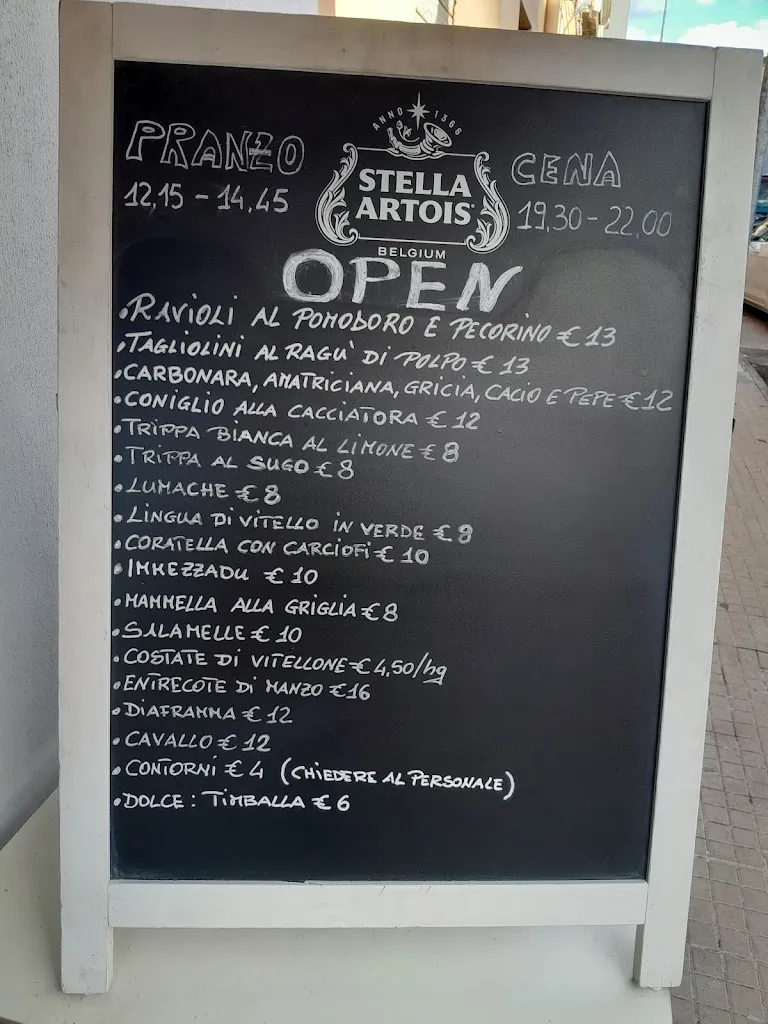 PRANZO
12,15 - 14,45
ANNO 1366
STELLA
ARTOIS
BELGIUM
CENA
19,30 - 22,00
OPEN
• RAVIOLI AL POMODORO E PECORINO € 13
• TAGLIOLINI AL RAGU' DI POLPO € 13
• CARBONARA, AMATRICIANA, GRICIA, CACIO E PEPE € 12
• CONIGLIO ALLA CACCIATORA € 12
• TRIPPA BIANCA AL LIMONE € 8
• TRIPPA AL SUGO € 8
• LUMACHE € 8
• LINGUA DI VITELLO IN VERDE € 8
• CORATELLA CON CARCIOFI € 10
• IMMEZZADU € 10
• MAMMELLA ALLA GRIGLIA € 8
• SALAMELLE € 10
• COSTATE DI VITELLONE € 4,50/hg
• ENTRECOTE DI MANZO € 16
• DIAFRAMMA € 12
• CAVALLO € 12
• CONTORNI € 4 (CHIEDERE AL PERSONALE)
• DOLCE: TIMBALLA € 6